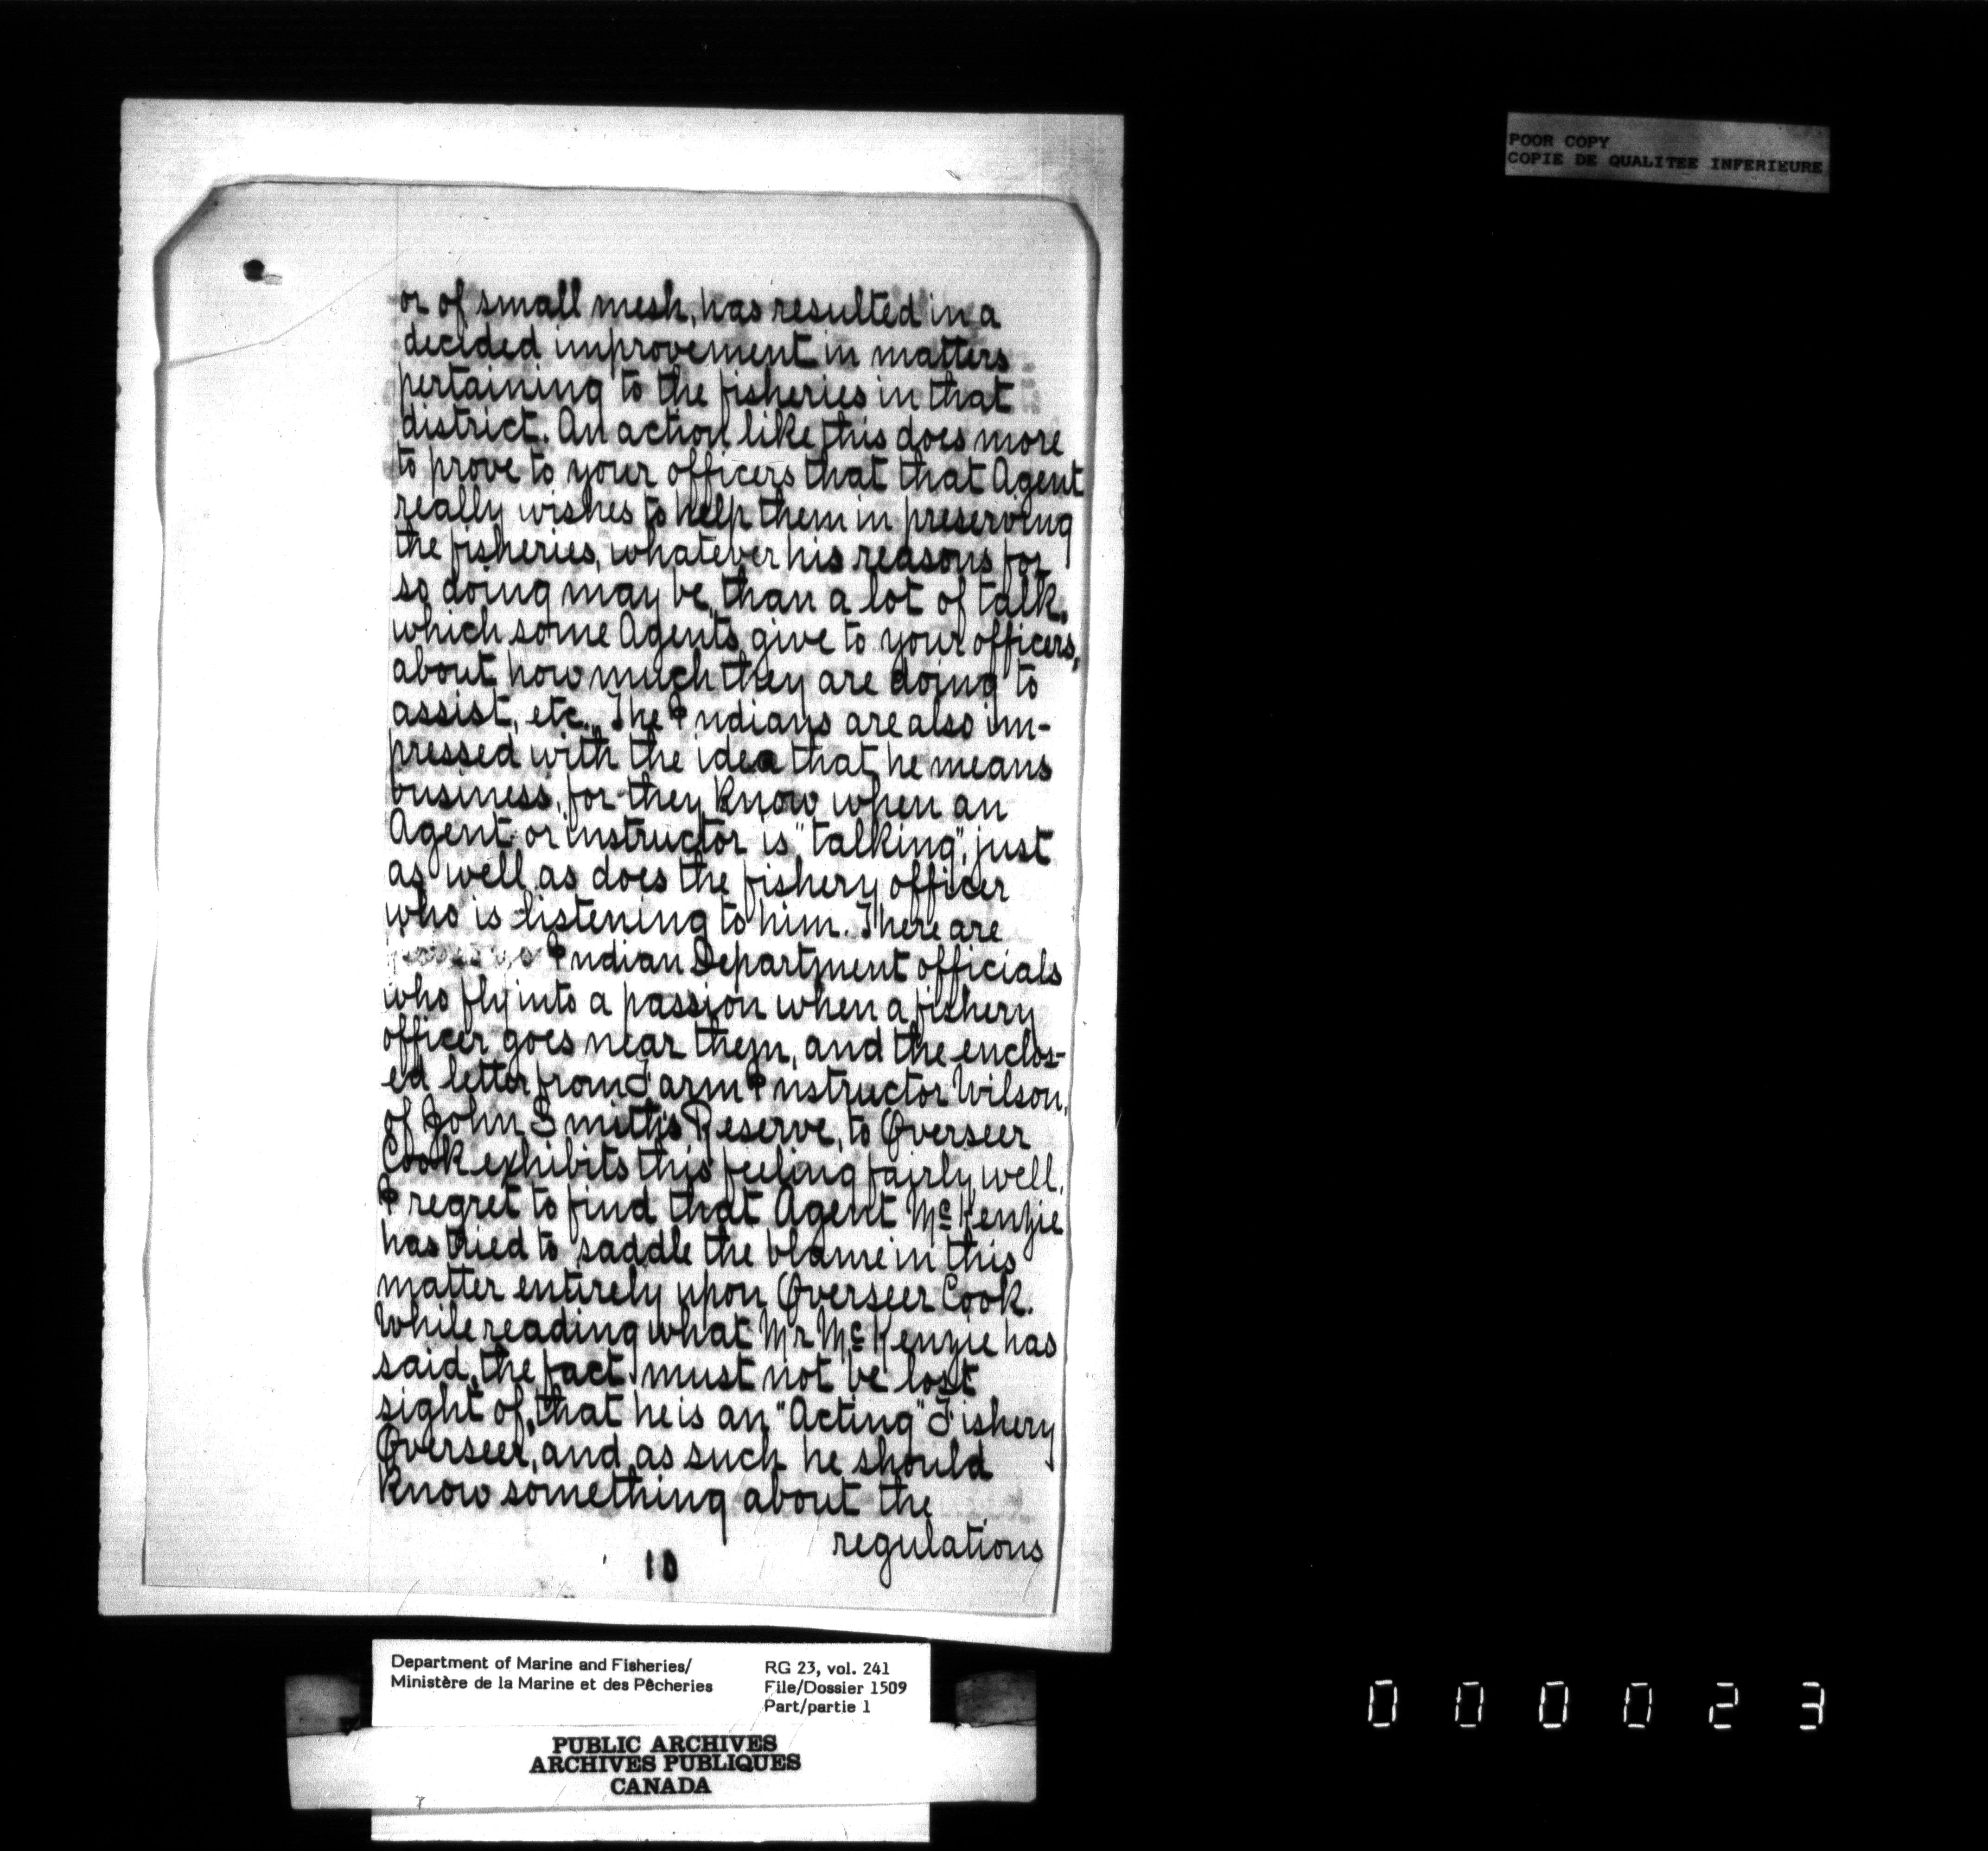 POOR COPY
COPIE DE QUALITEE INFERIEURE
or of small mesh, has resulted in a
decided improvement in matters
pertaining to the fisheries in that
district. An action like this does more
to prove to your officers that that Agent
really wishes to help them in preserving
the fisheries, whatever his reasons for
so doing may be, than a lot of talk,
which some Agents give to your officers,
about how much they are doing to
assist, etc. The Indians are also im-
pressed with the idea that he means
business, for they know when an
Agent or instructor is "talking", just
as well as does the fishery officer
who is listening to him. There are
Indian Department officials
who fly into a passion when a fishery
officer goes near them, and the enclos-
ed letter from Farm Instructor Wilson,
of John Smith's Reserve, to Overseer
Cook exhibits this feeling fairly well.
I regret to find that Agent McKenzie
has tried to saddle the blame in this
matter entirely upon Overseer Cook.
While reading what Mr McKenzie has
said, the fact must not be lost
sight of, that he is an "Acting" Fishery
Overseer, and as such he should
know something about the
regulations
10
Department of Marine and Fisheries/
Ministère de la Marine et des Pêcheries
RG 23, vol. 241
File/Dossier 1509
Part/partie 1
PUBLIC ARCHIVES
ARCHIVES PUBLIQUES
CANADA
000023